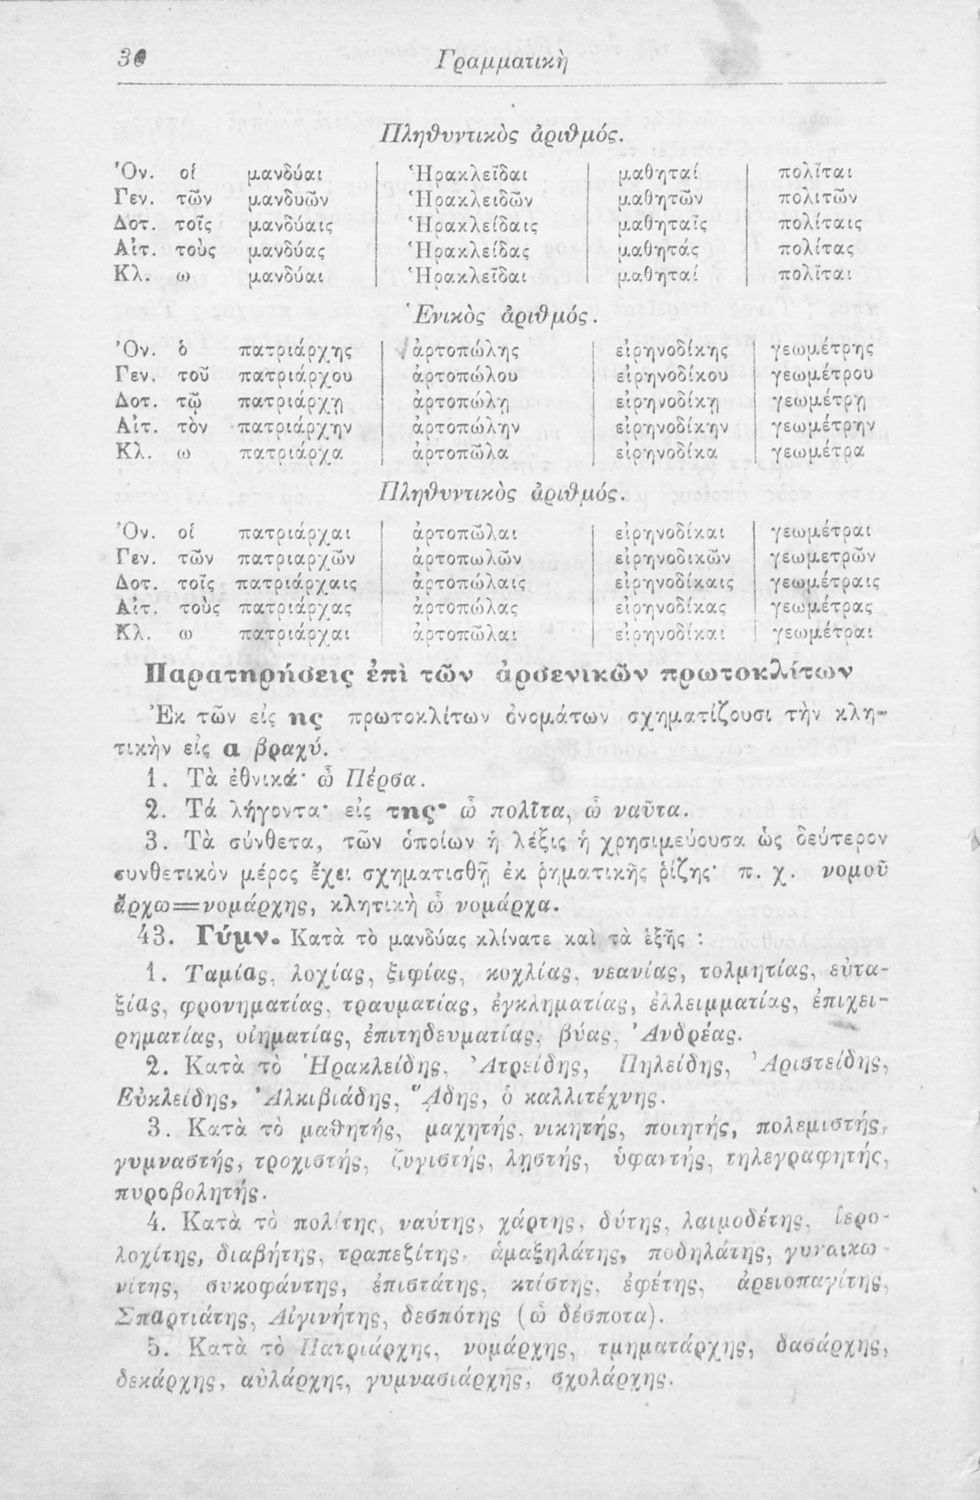 30 Γραμματικὴ
Πληθυντικὸς ἀριθμός.
Ὀν. οἱ μανδύαι Ἡρακλεῖδαι μαθηταί πολῖται
Γεν. τῶν μανδυῶν Ἡρακλειδῶν μαθητῶν πολιτῶν
Δοτ. τοῖς μανδύαις Ἡρακλείδαις μαθηταῖς πολίταις
Αἰτ. τοὺς μανδύας Ἡρακλείδας μαθητάς πολίτας
Κλ. ω μανδύαι Ἡρακλεῖδαι μαθηταί πολῖται
Ἑνικὸς ἀριθμός.
Ὀν. ὁ πατριάρχης ἀρτοπώλης εἰρηνοδίκης γεωμέτρης
Γεν. τοῦ πατριάρχου ἀρτοπώλου εἰρηνοδίκου γεωμέτρου
Δοτ. τῷ πατριάρχῃ ἀρτοπώλῃ εἰρηνοδίκῃ γεωμέτρῃ
Αἰτ. τὸν πατριάρχην ἀρτοπώλην εἰρηνοδίκην γεωμέτρην
Κλ. ω πατριάρχα ἀρτοπῶλα εἰρηνοδίκα γεωμέτρα
Πληθυντικὸς ἀριθμός.
Ὀν. οἱ πατριάρχαι ἀρτοπῶλαι εἰρηνοδίκαι γεωμέτραι
Γεν. τῶν πατριαρχῶν ἀρτοπωλῶν εἰρηνοδικῶν γεωμετρῶν
Δοτ. τοῖς πατριάρχαις ἀρτοπώλαις εἰρηνοδίκαις γεωμέτραις
Αἰτ. τοὺς πατριάρχας ἀρτοπώλας εἰρηνοδίκας γεωμέτρας
Κλ. ω πατριάρχαι ἀρτοπῶλαι εἰρηνοδίκαι γεωμέτραι
Παρατηρήσεις ἐπὶ τῶν ἀρσενικῶν πρωτοκλίτων
Ἐκ τῶν εἰς ης πρωτοκλίτων ὀνομάτων σχηματίζουσι τὴν κλη-
τικὴν εἰς α βραχύ.
1. Τὰ ἐθνικά· ὦ Πέρσα.
2. Τά λήγοντα· εἰς της· ὦ πολῖτα, ὦ ναῦτα.
3. Τὰ σύνθετα, τῶν ὁποίων ἡ λέξις ἡ χρησιμεύουσα ὡς δεύτερον
συνθετικὸν μέρος ἔχει σχηματισθῆ ἐκ ῥηματικῆς ῥίζης· π. χ. νομοῦ
ἄρχω=νομάρχης, κλητικὴ ὦ νομάρχα.
43. Γύμν. Κατὰ τὸ μανδύας κλίνατε καὶ τὰ ἑξῆς :
1. Ταμίας, λοχίας, ξιφίας, κοχλίας, νεανίας, τολμητίας, εὐτα-
ξίας, φρονηματίας, τραυματίας, ἐγκληματίας, ἐλλειμματίας, ἐπιχει-
ρηματίας, οἰηματίας, ἐπιτηδευματίας, βύας, Ἀνδρέας.
2. Κατὰ τὸ Ἡρακλείδης, Ἀτρείδης, Πηλείδης, Ἀριστείδης,
Εὐκλείδης, Ἀλκιβιάδης, ᾍδης, ὁ καλλιτέχνης.
3. Κατὰ τὸ μαθητής, μαχητής, νικητής, ποιητής, πολεμιστής,
γυμναστής, τροχιστής, ζυγιστής, λῃστής, ὑφαντής, τηλεγραφητής,
πυροβολητής.
4. Κατὰ τὸ πολίτης, ναύτης, χάρτης, δύτης, λαιμοδέτης, ἱερο-
λοχίτης, διαβήτης, τραπεζίτης, ἁμαξηλάτης, ποδηλάτης, γυναικω-
νίτης, συκοφάντης, ἐπιστάτης, κτίστης, ἐφέτης, ἀρειοπαγίτης,
Σπαρτιάτης, Αἰγινήτης, δεσπότης (ὦ δέσποτα).
5. Κατὰ τὸ Πατριάρχης, νομάρχης, τμηματάρχης, δασάρχης,
δεκάρχης, αὐλάρχης, γυμνασιάρχης, σχολάρχης.